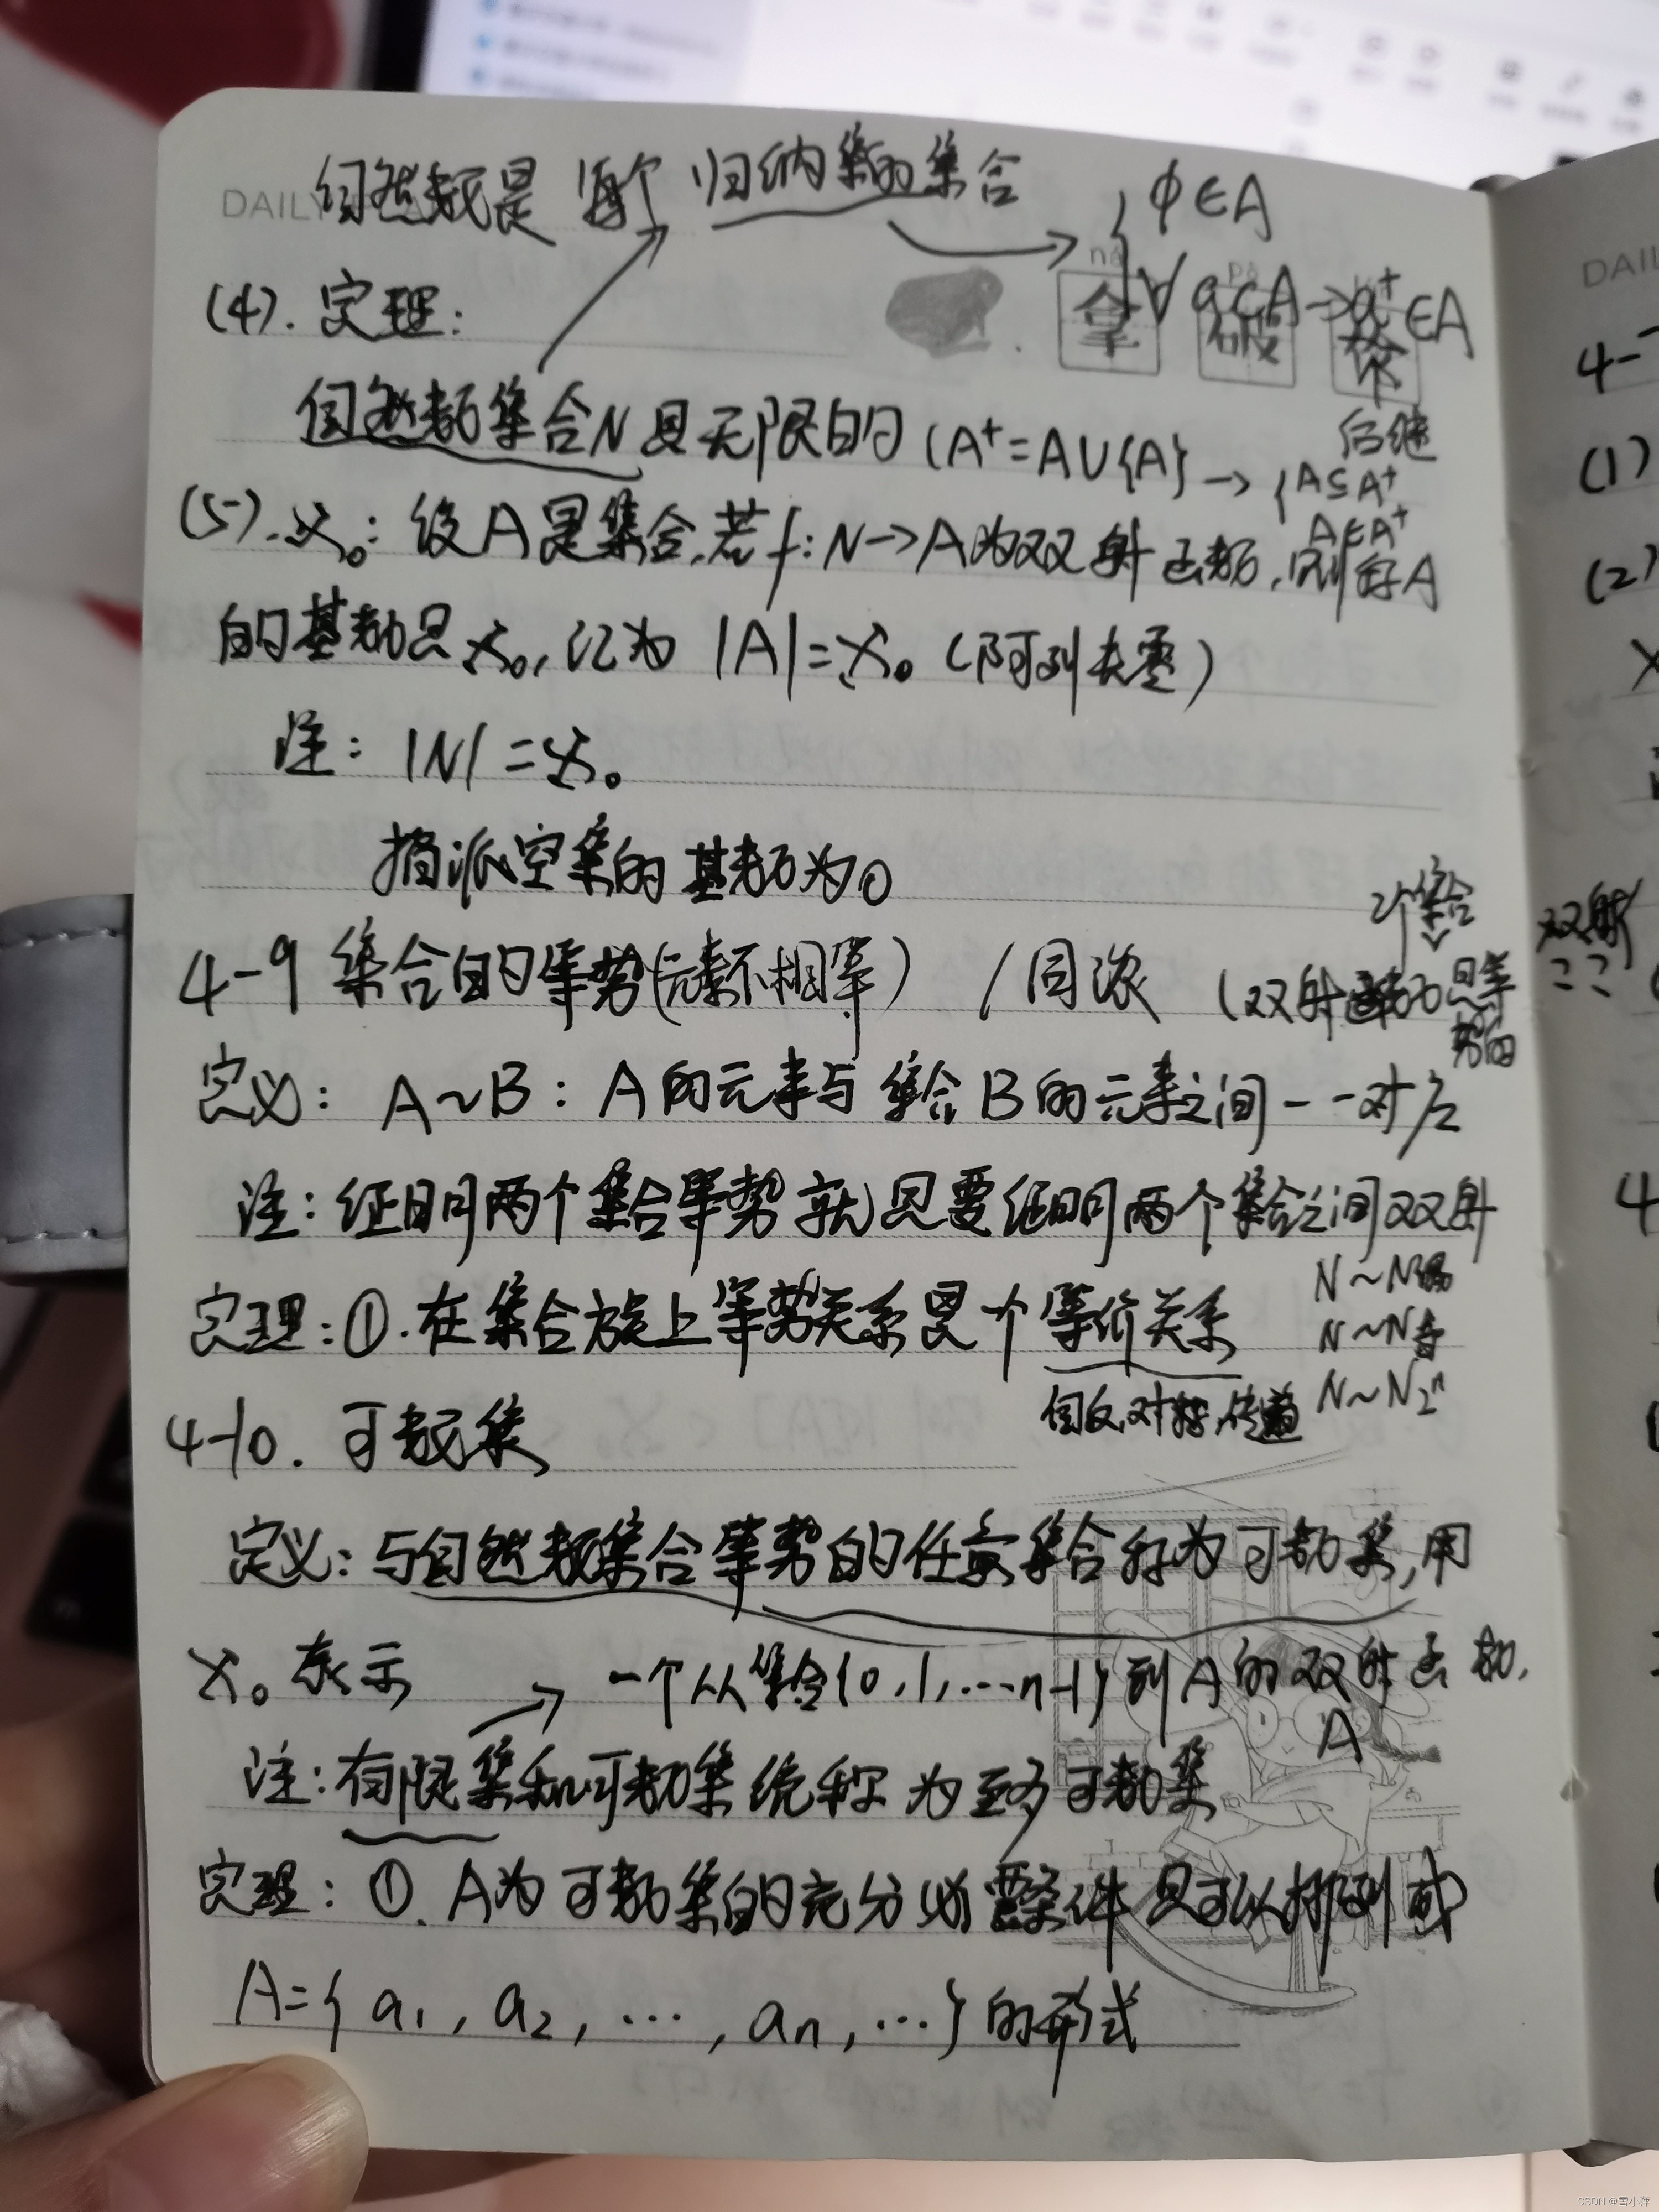 DAILY
自然数是 每个 归纳集的集合
∅∈A
∀ a∈A→a⁺∈A
拿 破 轮
后继
(4). 定理:
自然数集合N是无限的 (A⁺=A∪{A} → {A⊆A⁺
A∈A⁺
(5). ℵ₀: 设A是集合,若f:N→A为双射函数,则称A
的基数是ℵ₀,记为 |A|=ℵ₀ (阿列夫零)
注: |N|=ℵ₀
指派空集的基数为0
2个集合
4-9 集合的等势(元素不相等) / 同浓 (双射函数的是等
势的
定义: A~B: A的元素与集合B的元素之间一一对应
注:证明两个集合等势就只要证明两个集合之间双射
定理:①.在集合族上等势关系是个等价关系
N~N偶
N~N奇
N~N2ⁿ
自反,对称,传递
4-10. 可数集
定义:与自然数集合等势的任意集合称为可数集,用
ℵ₀表示 → 一个从集合{0,1,…n-1}到A的双射函数,
A
注:有限集和可数集统称为至多可数集
定理: ①. A为可数集的充分必要条件是可以排列成
A={ a₁, a₂, …, aₙ, …}的形式
DAIL
4-
(1)
(2)
双射
4
CSDN @雪小萍